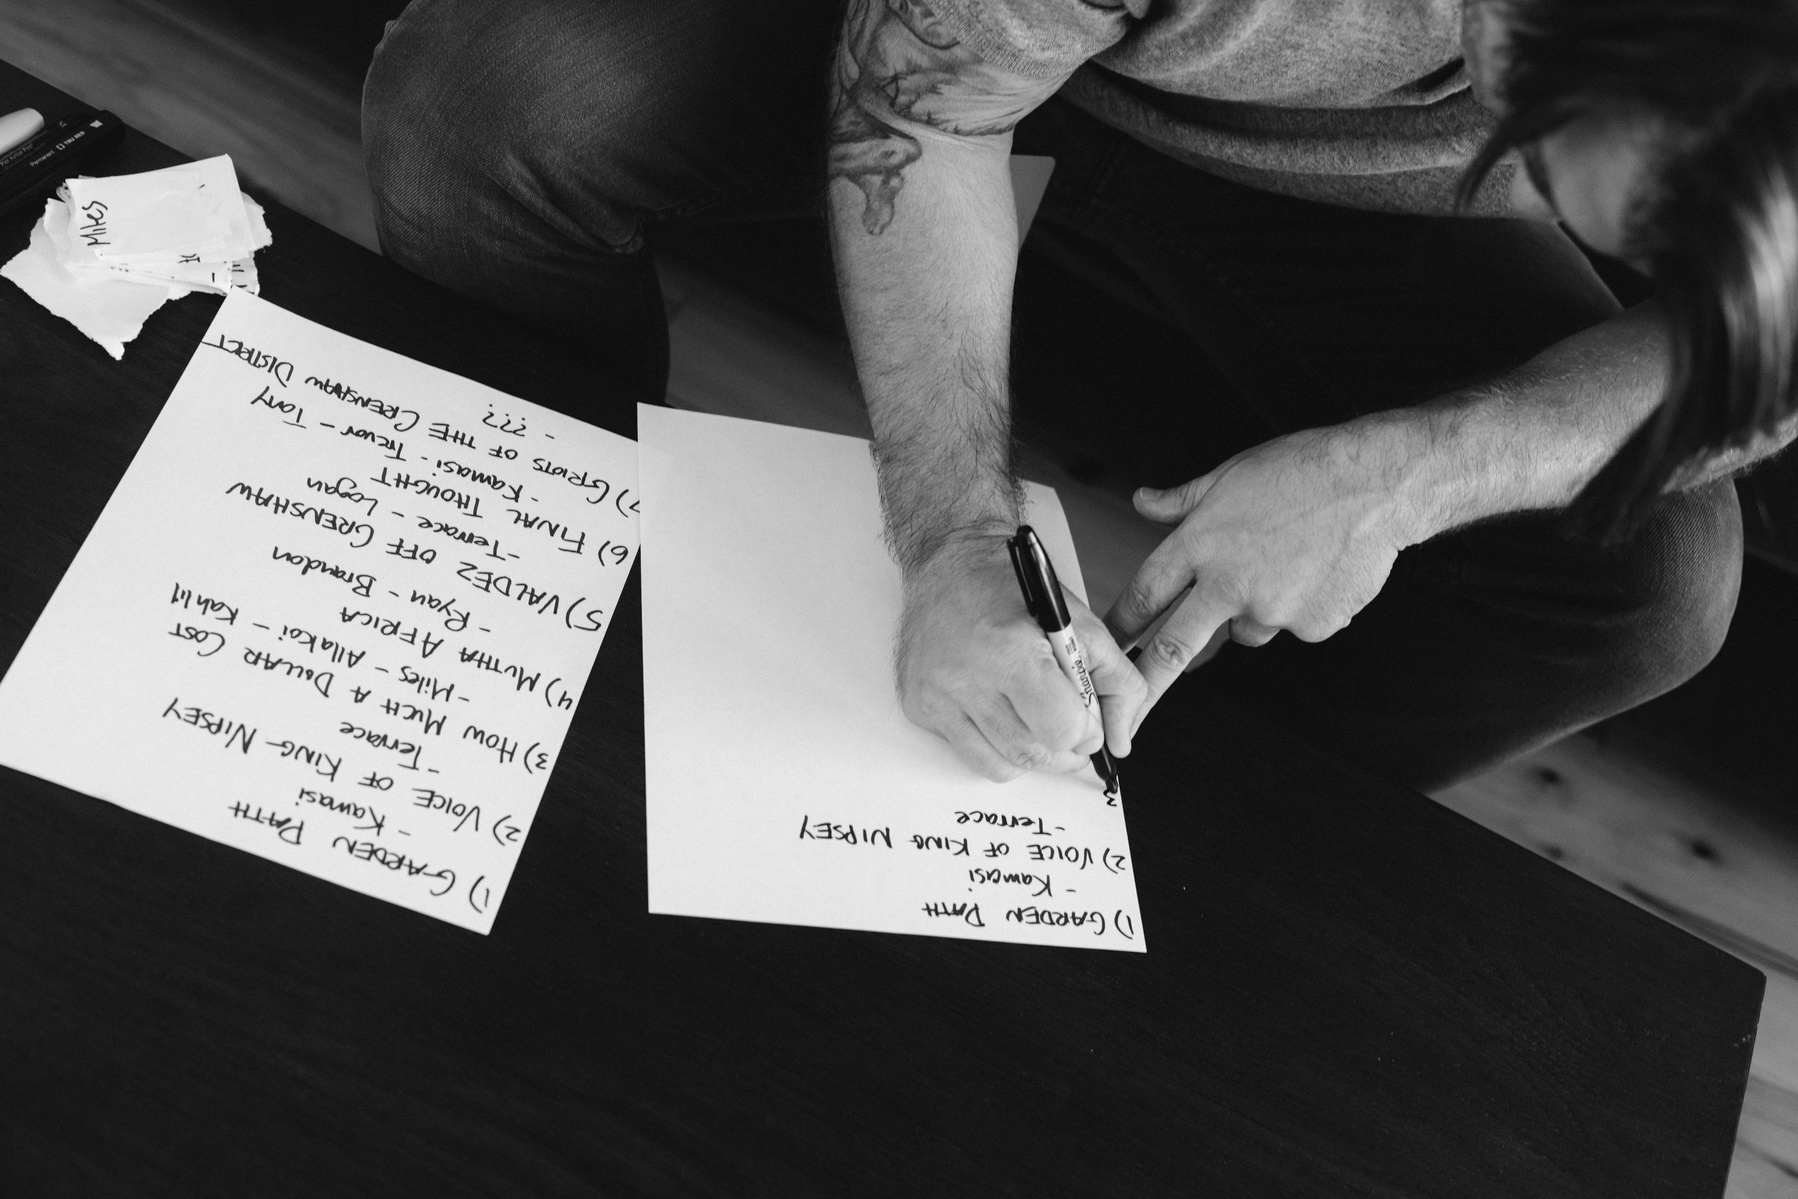 Miles
1) GARDEN PATH
- Kamasi
2) VOICE OF KING NIPSEY
- Terrace
3) HOW MUCH A DOLLAR COST
- Miles - Allakoi - Kahlil
4) MUTHA AFRICA
- Ryan - Brandon
5) VALDEZ OFF CRENSHAW
- Terrace - Logan
6) FINAL THOUGHT
- Kamasi - Trevor - Tony
7) GRIOTS OF THE CRENSHAW DISTRICT
- ???
1) GARDEN PATH
- Kamasi
2) VOICE OF KING NIPSEY
- Terrace
3
Sharpie